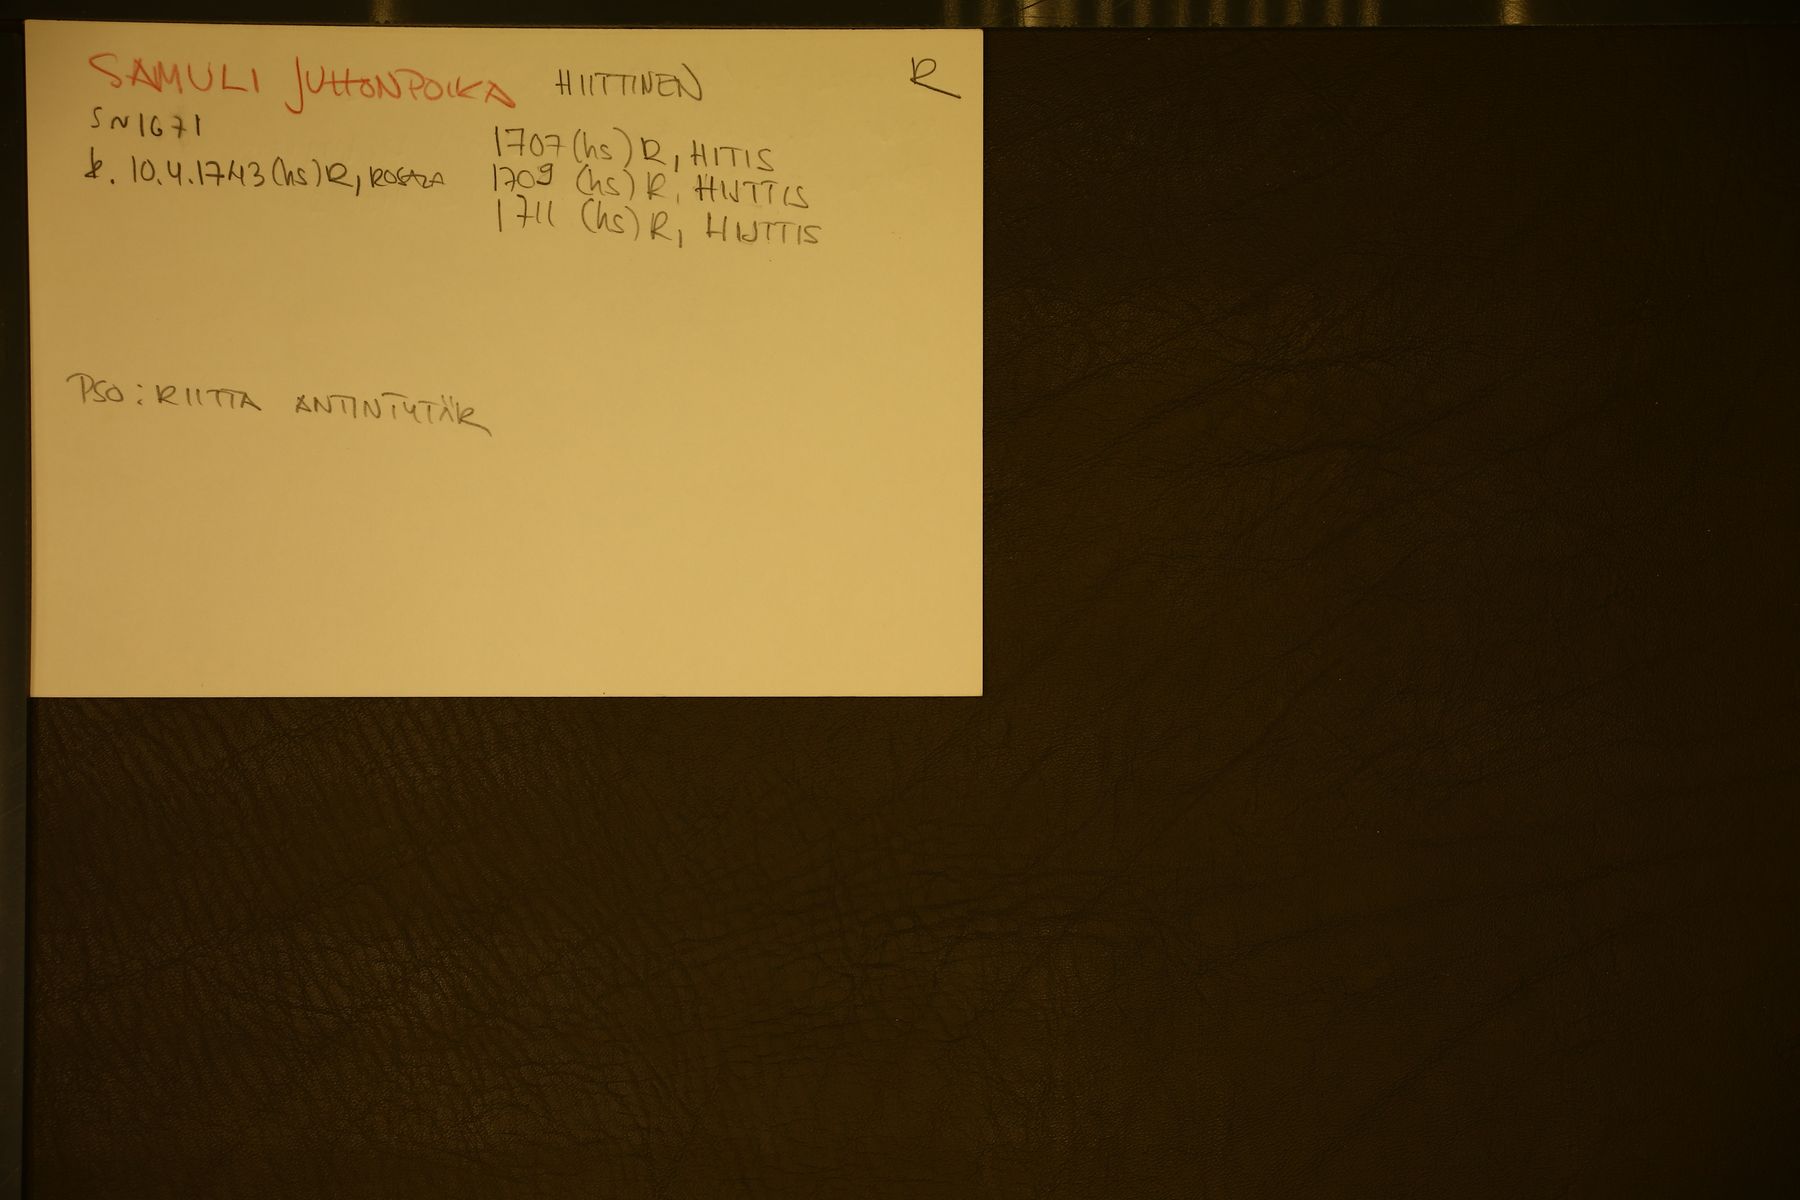 SAMULI JUHONPOIKA HIITTINEN R
SN 1671
k. 10.4.1743 (hs) R, ROSALA
1707 (hs) R, HITIS
1709 (hs) R, HIJTTIS
1711 (hs) R, HIJTTIS
PSO: RIITTA ANTINTYTÄR